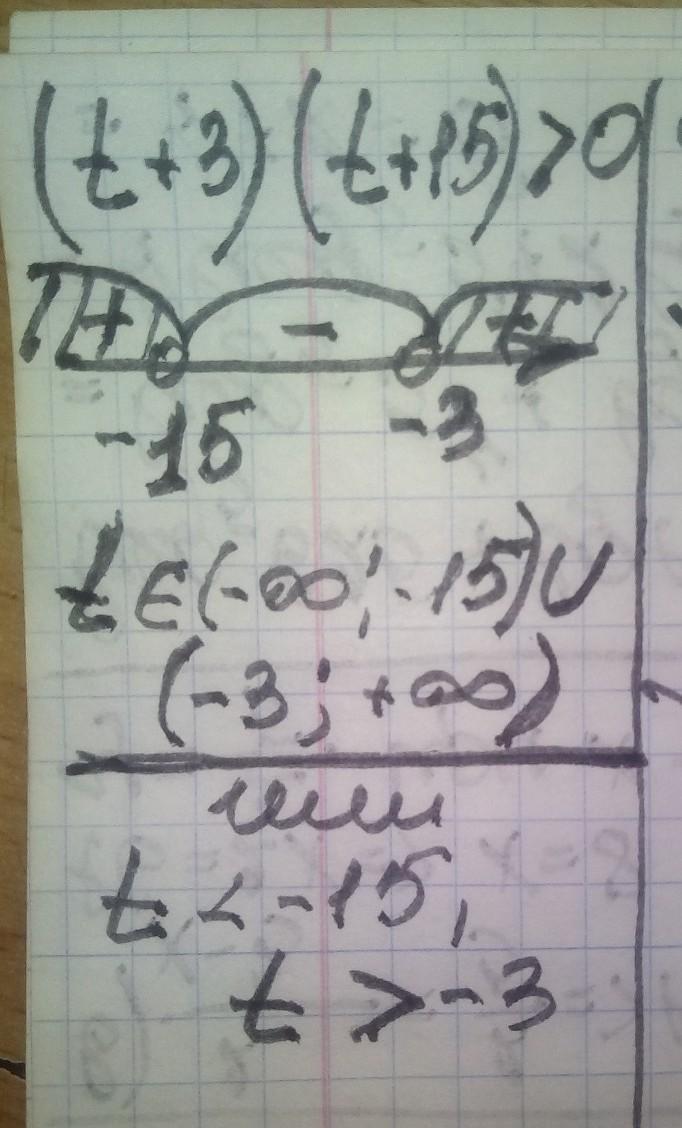 (t+3)(t+15)>0
+ - +
-15 -3
t∈(-∞;-15)∪
(-3;+∞)
или
t<-15,
t>-3